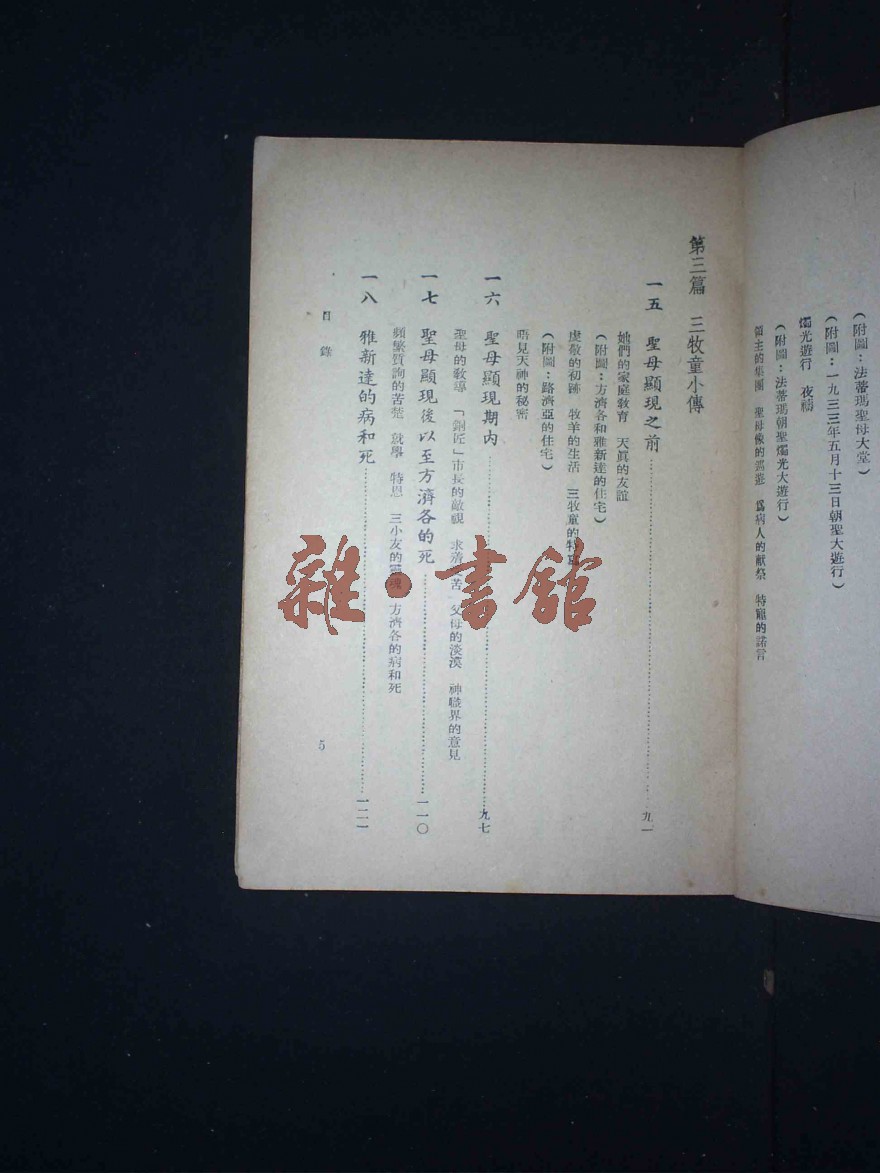 (附圖:法蒂瑪聖母大堂)
(附圖:一九三三年五月十三日朝聖大遊行)
燭光遊行　夜禱
(附圖:法蒂瑪朝聖燭光大遊行)
領主的集團　聖母像的巡遊　爲病人的獻祭　特寵的諾言
第三篇　三牧童小傳
一五　聖母顯現之前……九一
她們的家庭教育　天眞的友誼
(附圖:方濟各和雅新達的住宅)
虔敬的初跡　牧羊的生活　三牧童的特
(附圖:路濟亞的住宅)
晤見天神的秘密
一六　聖母顯現期內……九七
聖母的教導　「銅匠」市長的敵視　求 苦　父母的淡漠　神職界的意見
一七　聖母顯現後以至方濟各的死……一一〇
頻繁質詢的苦楚　就學　特恩　三小友的靈魂　方濟各的病和死
一八　雅新達的病和死……一二一
目錄
5
雜·書館